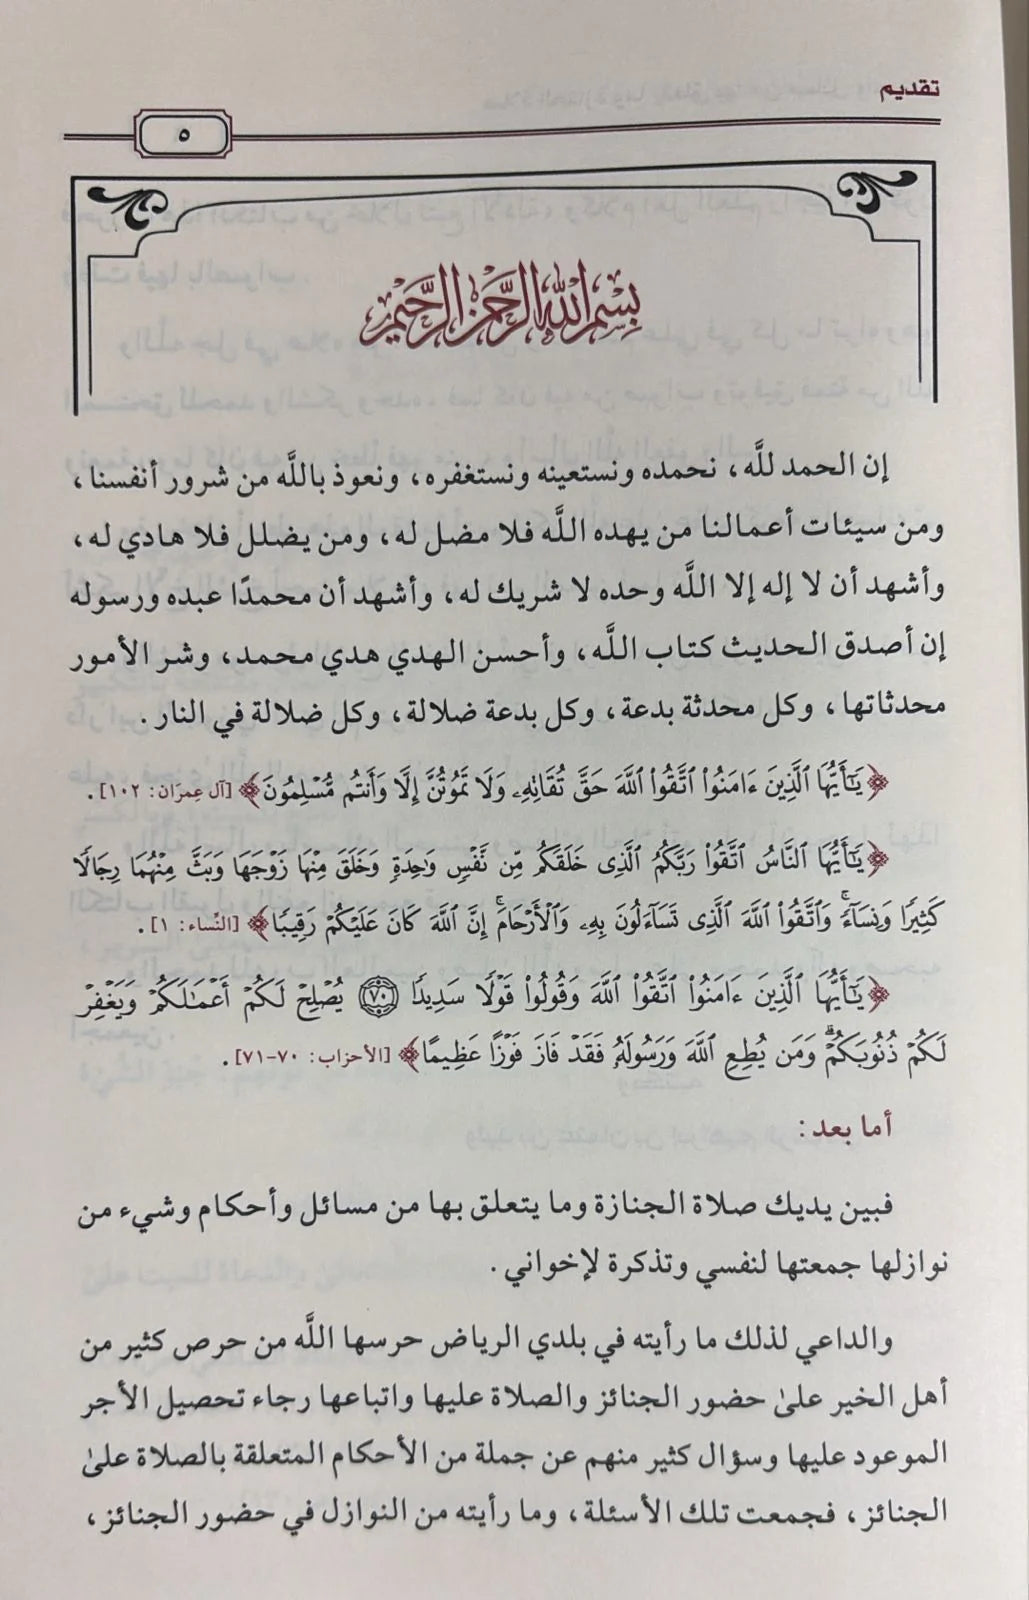 تقديم
٥
بسم الله الرحمن الرحيم
إن الحمد للَّه، نحمده ونستعينه ونستغفره، ونعوذ باللَّه من شرور أنفسنا،
ومن سيئات أعمالنا من يهده اللَّه فلا مضل له، ومن يضلل فلا هادي له،
وأشهد أن لا إله إلا اللَّه وحده لا شريك له، وأشهد أن محمدًا عبده ورسوله
إن أصدق الحديث كتاب اللَّه، وأحسن الهدي هدي محمد، وشر الأمور
محدثاتها، وكل محدثة بدعة، وكل بدعة ضلالة، وكل ضلالة في النار.
﴿يَٰٓأَيُّهَا ٱلَّذِينَ ءَامَنُوا۟ ٱتَّقُوا۟ ٱللَّهَ حَقَّ تُقَاتِهِۦ وَلَا تَمُوتُنَّ إِلَّا وَأَنتُم مُّسْلِمُونَ﴾ [آل عِمرَان: ١٠٢].
﴿يَٰٓأَيُّهَا ٱلنَّاسُ ٱتَّقُوا۟ رَبَّكُمُ ٱلَّذِى خَلَقَكُم مِّن نَّفْسٍ وَٰحِدَةٍ وَخَلَقَ مِنْهَا زَوْجَهَا وَبَثَّ مِنْهُمَا رِجَالًا
كَثِيرًا وَنِسَآءً ۚ وَٱتَّقُوا۟ ٱللَّهَ ٱلَّذِى تَسَآءَلُونَ بِهِۦ وَٱلْأَرْحَامَ ۚ إِنَّ ٱللَّهَ كَانَ عَلَيْكُمْ رَقِيبًا﴾ [النِّساء: ١].
﴿يَٰٓأَيُّهَا ٱلَّذِينَ ءَامَنُوا۟ ٱتَّقُوا۟ ٱللَّهَ وَقُولُوا۟ قَوْلًا سَدِيدًا ٧٠ يُصْلِحْ لَكُمْ أَعْمَٰلَكُمْ وَيَغْفِرْ
لَكُمْ ذُنُوبَكُمْ ۗ وَمَن يُطِعِ ٱللَّهَ وَرَسُولَهُۥ فَقَدْ فَازَ فَوْزًا عَظِيمًا﴾ [الأحزاب: ٧٠-٧١].
أما بعد:
فبين يديك صلاة الجنازة وما يتعلق بها من مسائل وأحكام وشيء من
نوازلها جمعتها لنفسي وتذكرة لإخواني.
والداعي لذلك ما رأيته في بلدي الرياض حرسها اللَّه من حرص كثير من
أهل الخير علىٰ حضور الجنائز والصلاة عليها واتباعها رجاء تحصيل الأجر
الموعود عليها وسؤال كثير منهم عن جملة من الأحكام المتعلقة بالصلاة علىٰ
الجنائز، فجمعت تلك الأسئلة، وما رأيته من النوازل في حضور الجنائز،